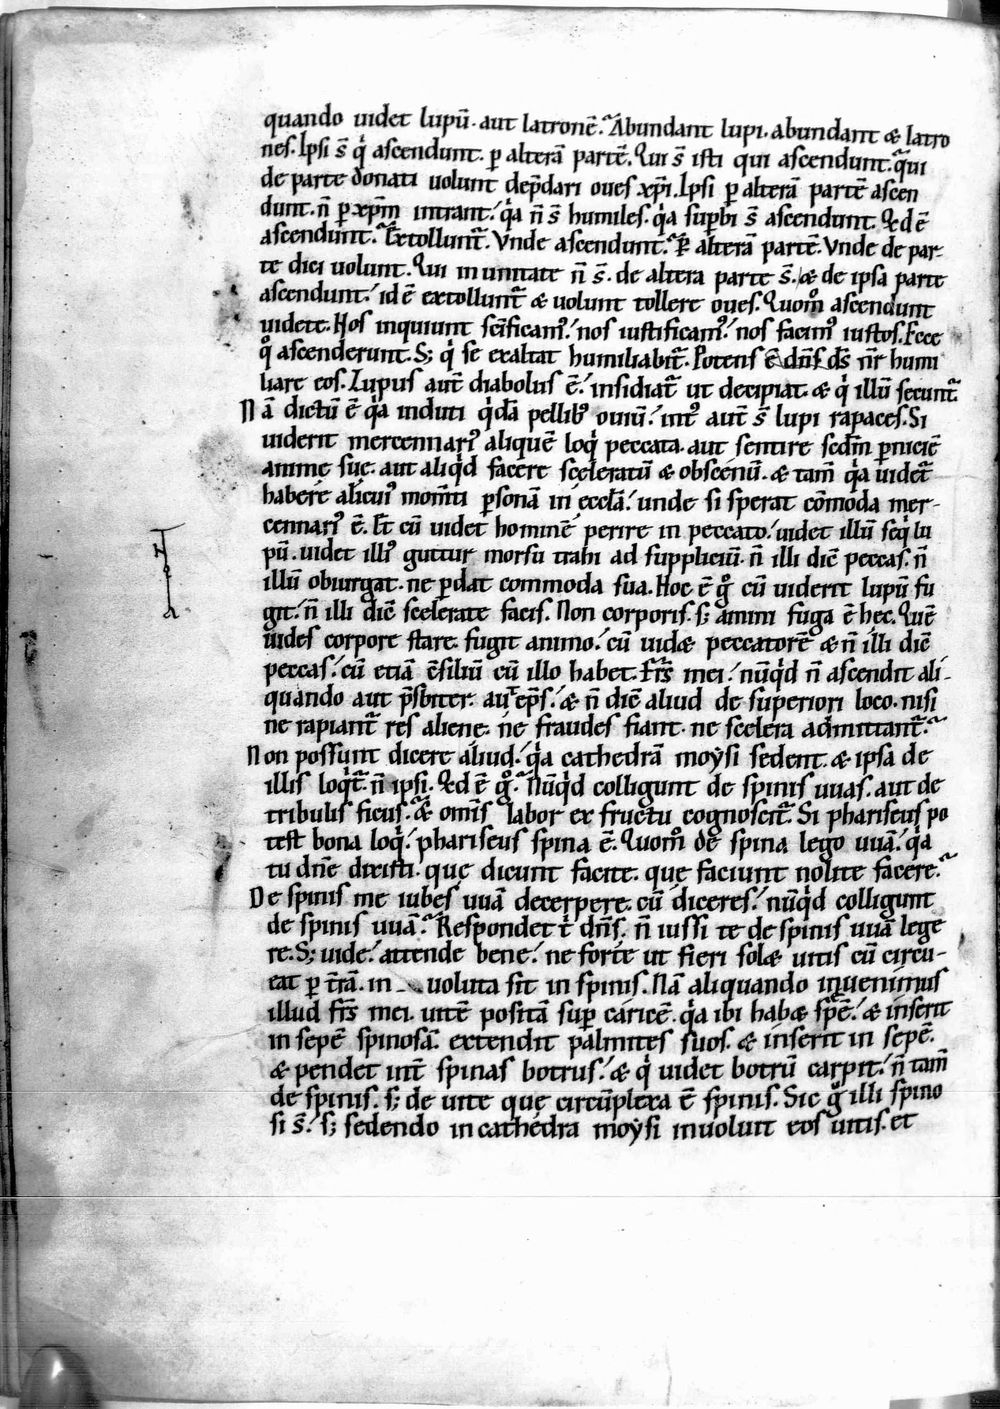 quando uidet lupū. aut latronē. Abundant lupi. abundant & latro
nes. Ipsi s̄ qͥ ascendunt. ꝑ alterā partē. Qui s̄ isti qui ascendunt. qui
de parte donati uolunt dep̄dari oues xp̄i. Ipsi ꝑ alterā partē ascen
dunt. n̄ ꝑ xp̄m intrant. qͥa n̄ s̄ humiles. qͥa suꝑbi s̄ ascendunt. Qͥd ē
ascendunt. Extollunt̄. Vnde ascendunt. Ꝑ alterā partē. Vnde de par-
te dici uolunt. Qui in unitate n̄ s̄. de altera parte s̄. & de ipsa parte
ascendunt. id ē extollunt̄ & uolunt tollere oues. Quom̊ ascendunt
uidete. Nos inquiunt sc̄ificamꝰ. nos iustificamꝰ. nos facimꝰ iustos. Ecce
q̊ ascenderunt. S; qͥ se exaltat humiliabit̄. Potens ē dn̄s ds̄ nr̄ humi
liare eos. Lupus aut̄ diabolus ē. insidiat̄ ut decipiat. & qͥ illū secunt̄.
Nā dictū ē qͥa induti qͥdā pellibꝰ ouiū. intꝰ aut̄ s̄ lupi rapaces. Si
uiderit mercennariꝰ aliquē loqͥ peccata. aut sentire sedm̄ ꝑniciē
animę suę. aut aliqͥd facere sceleratū & obscenū. & tam̄ qͥa uidet̄
habere alicuiꝰ mom̄ti ꝑsonā in ęccl̄a. unde si sperat cōmoda mer-
cennariꝰ ē. Et cū uidet hominē perire in peccato. uidet illū seqͥ lu
pū. uidet illiꝰ guttur morsu trahi ad suppliciū. n̄ illi dic̄ peccas. n̄
illū obiurgat. ne ꝑdat commoda sua. Hoc ē g̊ cū uiderit lupū fu
git. n̄ illi dic̄ scelerate facis. Non corporis. s; animi fuga ē hęc. Quē
uides corpore stare. fugit animo. cū uid& peccatorē & n̄ illi dic̄
peccas. cū etiā c̄siliū cū illo habet. Fr̄s mei. nūqͥd n̄ ascendit ali-
quando aut p̄sbiter. aut ep̄s. & n̄ dic̄ aliud de superiori loco. nisi
ne rapiant̄ res alienę. ne fraudes fiant. ne scelera admittant̄.
Non possunt dicere aliud. qͥa cathedrā moẏsi sedent. & ipsa de
illis loqͥt̄. n̄ ipsi. Qͥd ē g̊. Nūqͥd colligunt de spinis uuas. aut de
tribulis ficus. & om̄s labor ex fructu cognoscit̄. Si phariseus po
test bona loqͥ. phariseus spina ē. Quom̊ de spina lego uuā. qͥa
tu dn̄e dixisti. que dicunt facite. que faciunt nolite facere.
De spinis me iubes uuā decerpere. cū diceres. nūqͥd colligunt
de spinis uuā. Respondet t̄ dn̄s. n̄ iussi te de spinis uuā lege
re. S; uide. attende bene. ne forte ut fieri sol& uitis cū circu-
eat ꝑ t̄rā. in- uoluta sit in spinis. Nā aliquando inuenimus
illud fr̄s mei. uitē positā suꝑ caricē. qͥa ibi hab& sp̄ē. & inserit
in sepē spinosā. extendit palmites suos. & inserit in sepē.
& pendet int̄ spinas botrus. & qͥ uidet botrū carpit. n̄ tam̄
de spinis. s; de uite quę circūplexa ē spinis. Sic g̊ illi spino
si s̄. s; sedendo in cathedra moẏsi inuoluit eos uitis. et